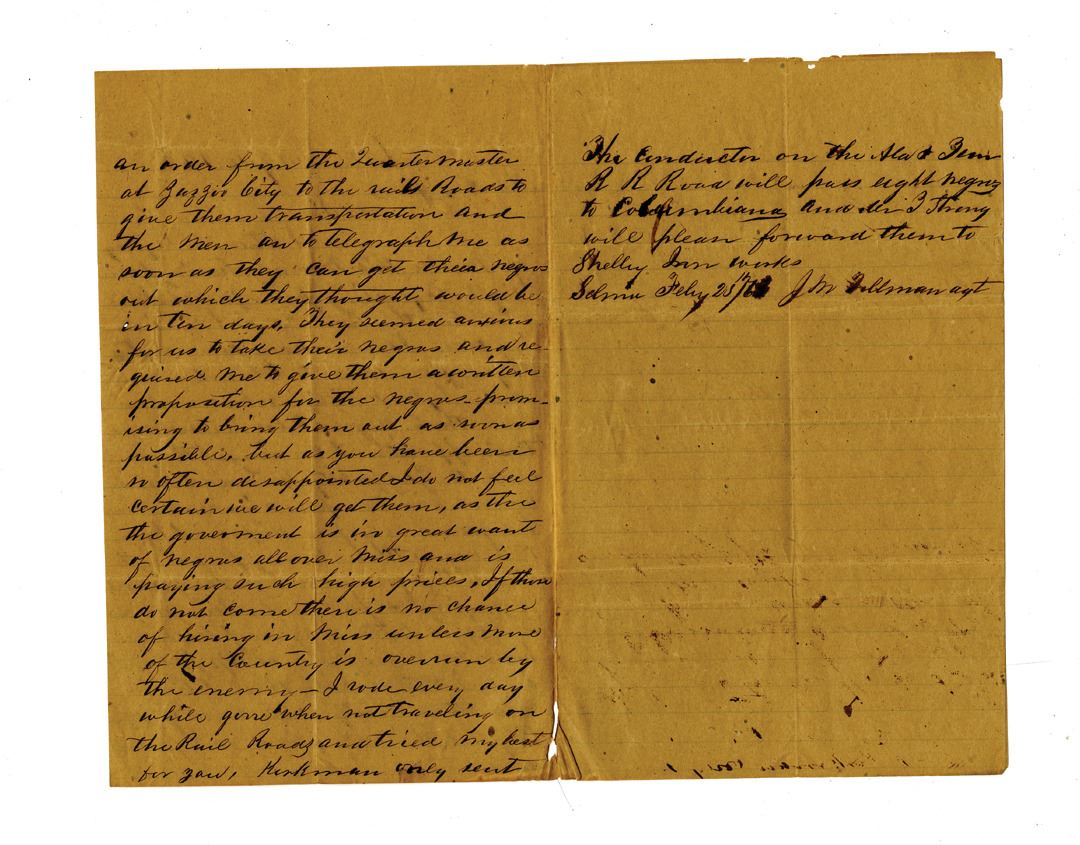 an order from the Quartermaster
at Yazzo City to the rail Roads to
give them transportation and
the men are to telegraph me as
soon as they can get their negros
out which they thought would be
in ten days. They seemed anxious
for us to take their negros and re-
quired me to give them a written
proposition for the negros- prom-
ising to bring them out as soon as
possible, but as you have been
so often disappointed I do not feel
certain we will get them, as the
the goverment is in great want
of negros all over Miss and is
paying such high prices. If these
do not come there is no chance
of hiring in Miss unless more
of the Country is overrun by
the enemy - I rode every day
while gone when not traveling on
the Rail Roads and tried my best
for you, Kirkman only sent
The Conductor on the Ala & Tenn
R R Road will pass eight negros
to Columbiana and Mr J Strong
will please forward them to
Shelby Iron works
Selma Feby 25 J M Tillman agt